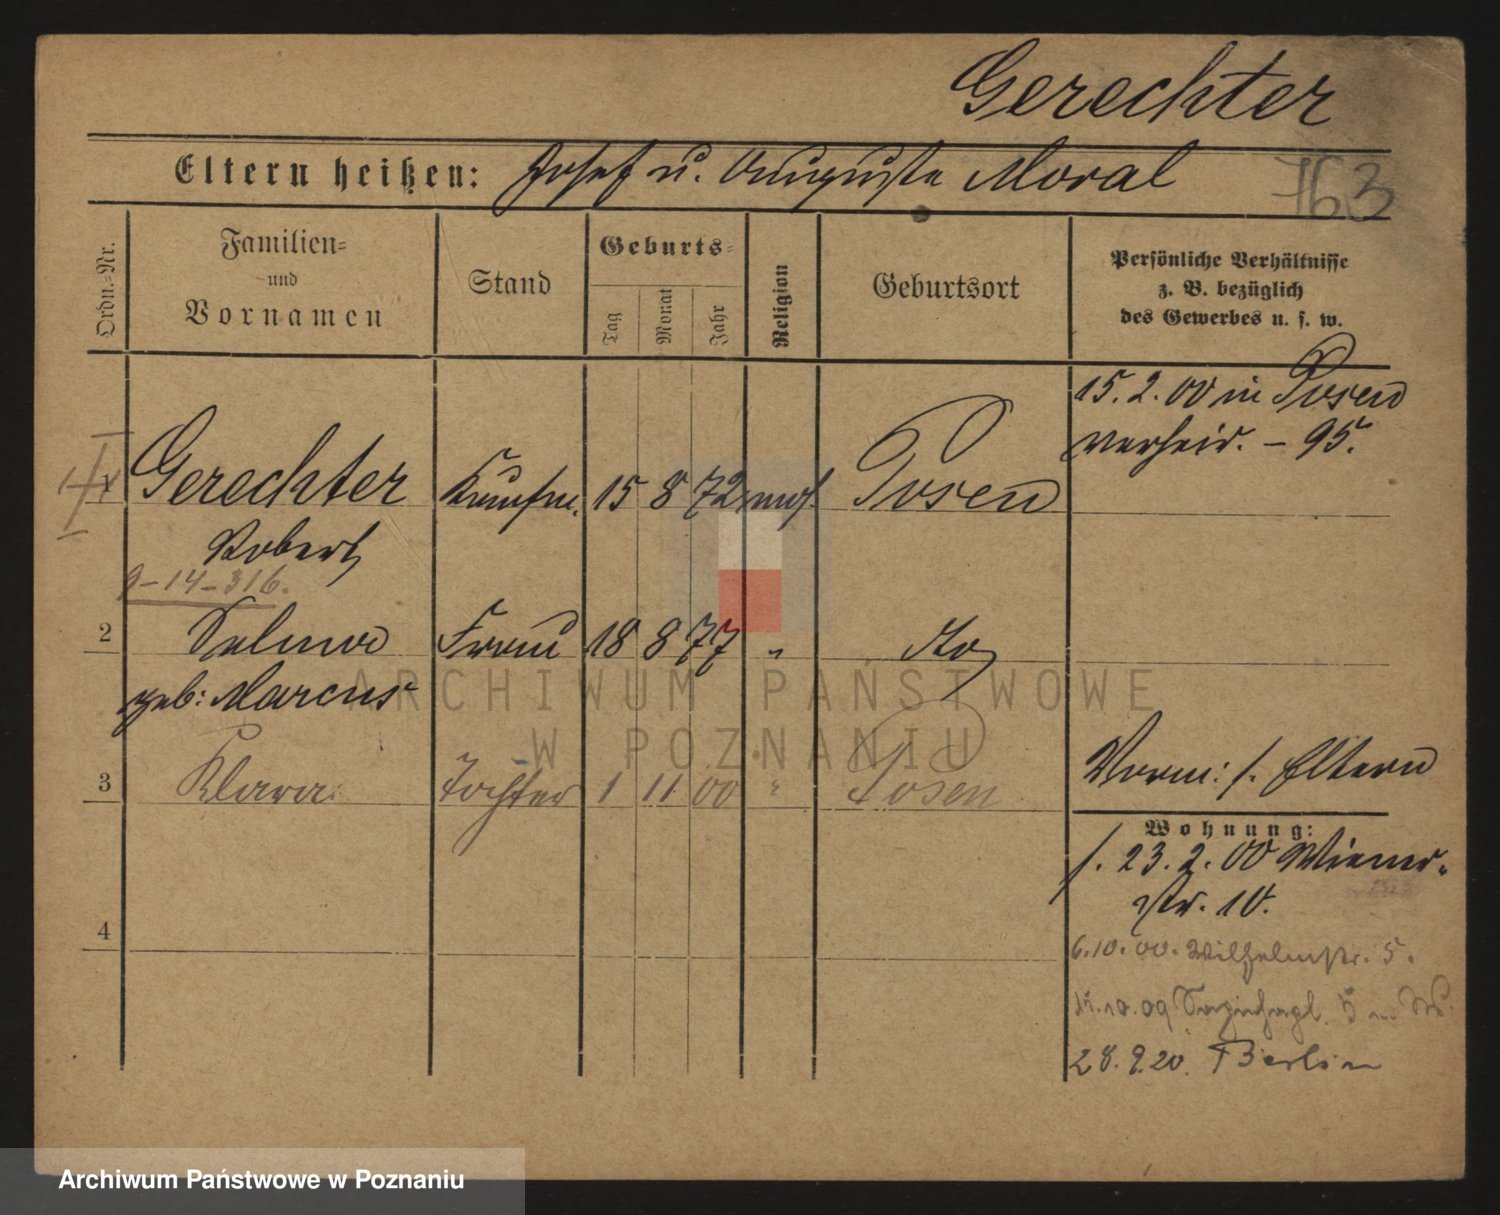 Gerechter
Eltern heißen: Josef u. Auguste Moral
763
Ordn.-Nr.
Familien-
und
Vornamen
Stand
Geburts-
Tag
Monat
Jahr
Religion
Geburtsort
Persönliche Verhältnisse
z. B. bezüglich
des Gewerbes u. s. w.
15. 2. 00 in Posen
verheir. – 95.
1 Gerechter Kaufm. 15 8 72 mos. Posen
Robert
9-14-316.
2 Selma Frau 18 8 77 " dto
geb: Marcus
3 Klara Tochter 1 11 00 " Posen
Vorm: s. Eltern
Wohnung:
s. 23. 2. 00 Wiener-
str. 10.
4
6.10.00. Wilhelmstr. 5.
10.09
28.9.20. Berlin
ARCHIWUM PAŃSTWOWE
W POZNANIU
Archiwum Państwowe w Poznaniu